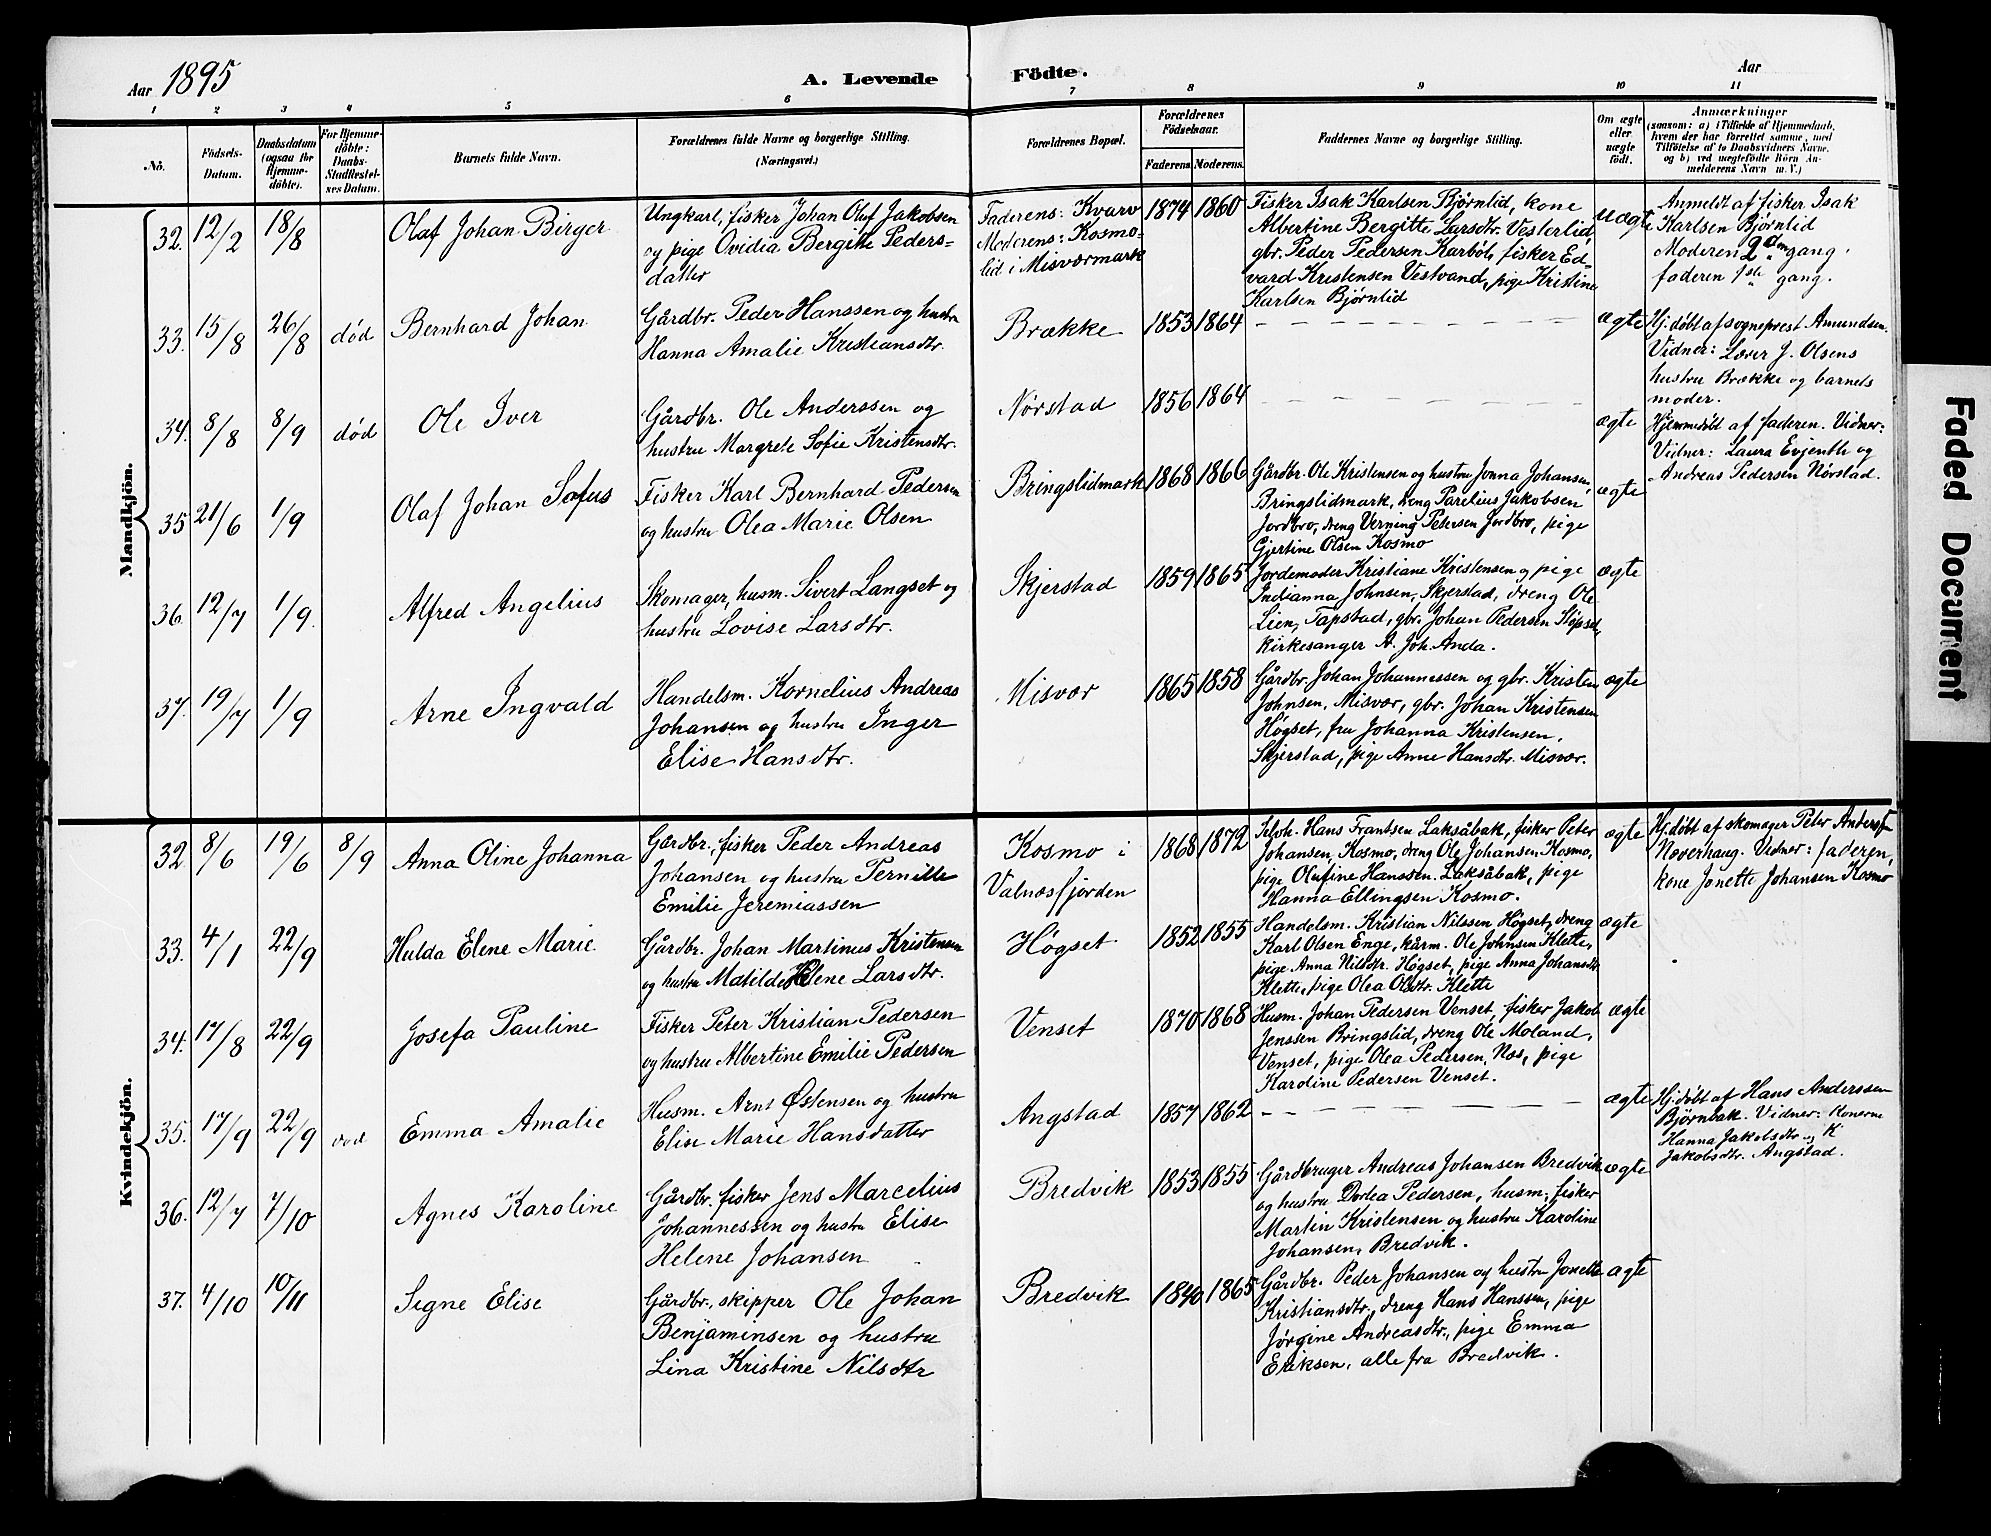 Aar 1895
A. Levende Födte.
Aar
1 2 3 4 5 6 7 8 9 10 11
No.
Födsels-
Datum.
Daabsdatum
(ogsaa for
Hjemme-
döbte).
For Hjemme-
döbte:
Daabs-
Stadfæstel-
ses Datum.
Barnets fulde Navn.
Forældrenes fulde Navne og borgerlige Stilling.
(Næringsvei.)
Forældrenes Bopæl.
Forældrenes
Födselsaar.
Faderens. Moderens.
Faddernes Navne og borgerlige Stilling.
Om ægte
eller
uægte
födt.
Anmærkninger
(saasom: a) i Tilfælde af Hjemmedaab,
hvem der har forrettet samme, med
Tilföielse af to Daabsvidners Navne,
og b) ved uægtefödte Börn An-
melderens Navn m. V.)
Mandkjön.
32. 12/2 18/8
Olaf Johan Birger
Ungkarl, fisker Johan Oluf Jakobsen
og pige Ovidia Bergitte Peders-
datter
Faderens: Kvarv
Moderens: Kosmo-
lid i Misværmark
1874 1860
Fisker Isak Karlsen Bjørnlid, kone
Albertine Bergitte Larsdtr. Vesterlid,
gbr. Peder Pedersen Karbøl, fisker Ed-
vard Kristensen Vestvand, pige Kristine
Karlsen Bjørnlid
uægte
Anmeldt af fisker Isak
Karlsen Bjørnlid
Moderen 2den gang.
faderen 1ste gang.
33. 15/8 26/8 død
Bernhard Johan
Gårdbr. Peder Hanssen og hustru
Hanna Amalie Kristiansdtr.
Brække
1853 1864
ægte
Hj. døbt af sogneprest Amundsen.
Vidner: Lærer J. Olsens
hustru Brække og barnets
moder.
34. 8/8 8/9 død
Ole Iver
Gårdbr. Ole Anderssen og
hustru Margrete Sofie Kristensdtr.
Nørstad
1856 1864
ægte
Hjemmedøbt af faderen. Vidner:
Vidner: Laura Evjenth og
Andreas Pedersen Nørstad.
35 21/6 1/9
Olaf Johan Sofus
Fisker Karl Bernhard Pedersen
og hustru Olea Marie Olsen
Bringslidmark
1868 1866
Gårdbr. Ole Kristensen og hustru Jonna Johansen,
Bringslidmark, dreng Parelius Jakobsen
Jordbro, dreng Verning Petersen Jordbro, pige
Gjertine Olsen Kosmo
ægte
36. 12/7 1/9.
Alfred Angelius
Skomager, husm. Sivert Langset og
hustru Lovise Larsdtr.
Skjerstad
1859 1865
Jordemoder Kristiane Kristensen og pige
Indianna Johnsen, Skjerstad, dreng Ole
Lien, Tapstad, gbr. Johan Pedersen Støpset,
kirkesanger A. Joh. Anda.
ægte
37. 19/7 1/9
Arne Ingvald
Handelsm. Kornelius Andreas
Johansen og hustru Inger
Elise Hansdtr.
Misvær
1865 1858
Gårdbr. Johan Johannessen og gbr. Kristen
Johnsen, Misvær, gbr. Johan Kristensen
Høgset, fru Johanna Kristensen,
Skjerstad, pige Anne Hansdtr. Misvær.
ægte
Kvindekjön.
32 8/6 19/6 8/9
Anna Oline Johanna
Gårdbr., fisker Peder Andreas
Johansen og hustru Pernille
Emilie Jeremiassen
Kosmo i
Valnæsfjorden
1868 1872
Selvh. Hans Frantsen Laksåbak, fisker Peter
Johansen, Kosmo, dreng Ole Johansen Kosmo,
pige Olufine Hanssen Laksåbak, pige
Hanna Ellingsen Kosmo.
ægte
Hj. døbt af skomager Peter Anderssen
Noverhaug. Vidner: faderen,
kone Jonette Johansen Kosmo
33. 4/1 22/9
Hulda Elene Marie
Gårdbr. Johan Martinus Kristensen
og hustru Matilde Helene Larsdtr.
Høgset
1852 1855
Handelsm. Kristian Nilssen Høgset, dreng
Karl Olsen Enge, kårm. Ole Johnsen Klette,
pige Anna Nilsdtr. Høgset, pige Anna Johansdtr
Klette, pige Olea Olsdtr. Klette
ægte
34. 17/8 22/9
Josefa Pauline
Fisker Peter Kristian Pedersen
og hustru Albertine Emilie Pedersen
Venset
1870 1868
Husm. Johan Pedersen Venset, fisker Jakob
Jenssen Bringslid, dreng Ole Moland,
Venset, pige Olea Pedersen, Næs, pige
Karoline Pedersen Venset.
ægte
35. 17/9 22/9
Emma Amalie
Husm. Arnt Østensen og hustru
Elise Marie Hansdatter
Angstad
1857 1862
ægte
Hj. døbt af Hans Anderssen
Bjørnbak. Vidner: Konerne
Hanna Jakobsdtr. og K
Jakobsdtr. Angstad.
36. 12/7 7/10
Agnes Karoline
Gårdbr. fisker Jens Marcelius
Johannessen og hustru Elise
Helene Johansen
Bredvik
1853 1855
Gårdbruger Andreas Johansen Bredvik
og hustru Dorlea Pedersen, husm, fisker
Martin Kristensen og hustru Karoline
Johansen, Bredvik.
ægte
37. 4/10 10/11
Signe Elise
Gårdbr., skipper Ole Johan
Benjaminsen og hustru
Lina Kristine Nilsdtr
Bredvik
1840 1865
Gårdbr. Peder Johansen og hustru Jonette
Kristiansdtr., dreng Hans Hanssen, pige
Jørgine Andreasdtr., pige Emma
Eriksen, alle fra Bredvik.
ægte
Faded Document